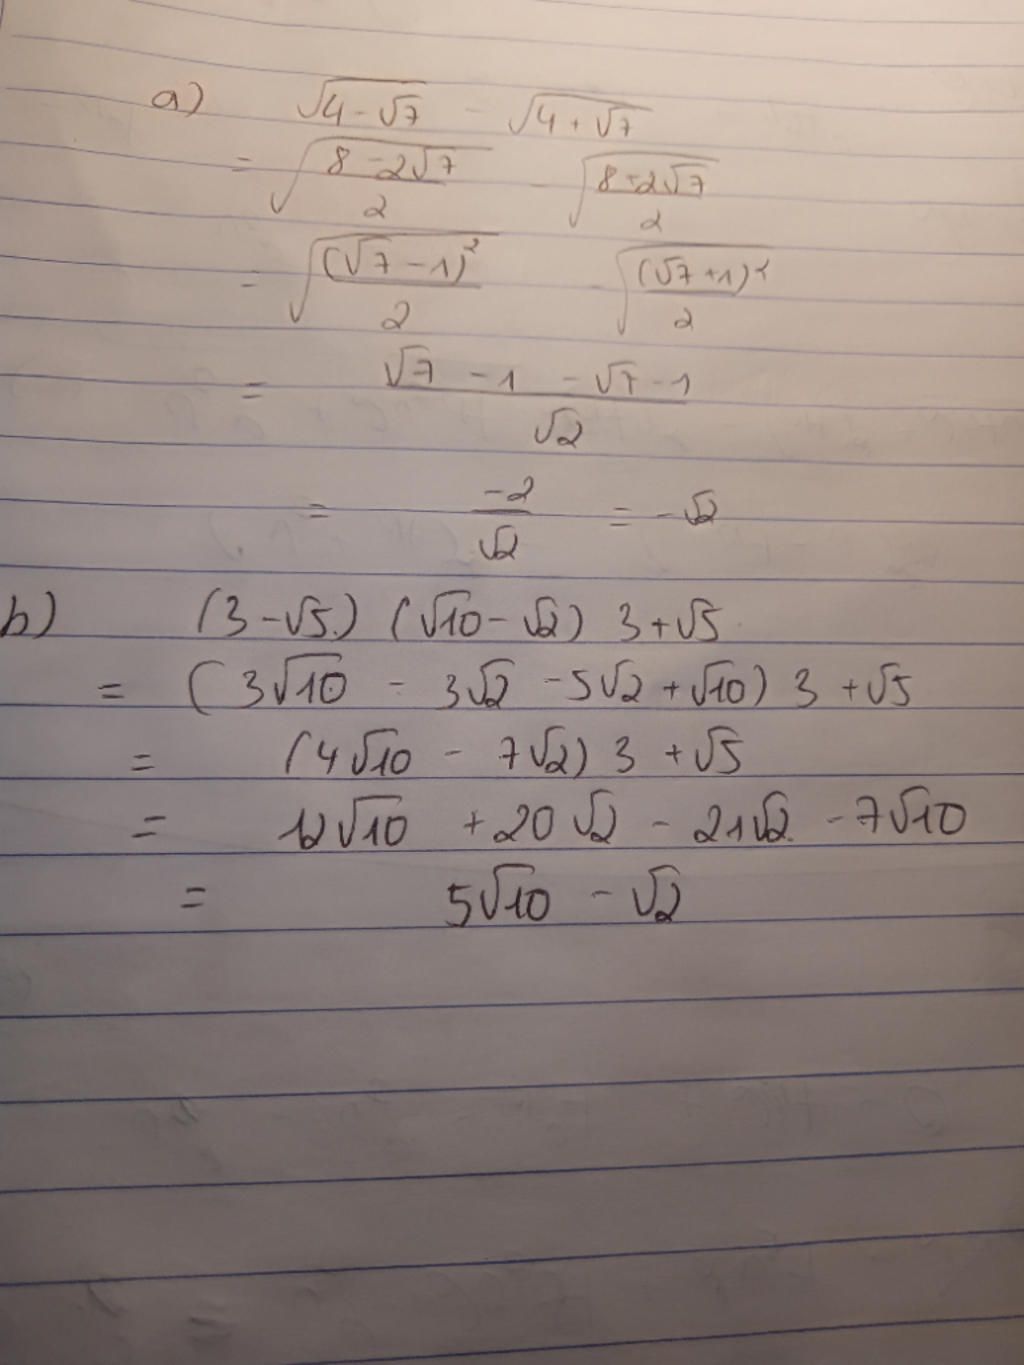 a) √(4 - √7) - √(4 + √7)
= √((8 - 2√7)/2) - √((8 + 2√7)/2)
= √((√7 - 1)²/2) - √((√7 + 1)²/2)
= (√7 - 1 - √7 - 1)/√2
= -2/√2 = -√2
b) (3 - √5) (√10 - √2) 3 + √5
= (3√10 - 3√2 - 5√2 + √10) 3 + √5
= (4√10 - 7√2) 3 + √5
= 12√10 + 20√2 - 21√2 - 7√10
= 5√10 - √2